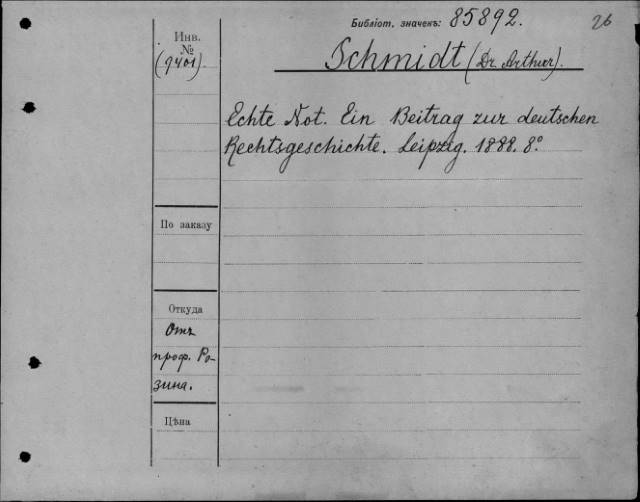 Библіот. значекъ: 85892.
26
Инв.
№
(9401)
Schmidt (Dr. Arthur).
Echte Not. Ein Beitrag zur deutschen
Rechtsgeschichte. Leipzig. 1888. 8°
По заказу
Откуда
Отъ
проф. Ро-
зина.
Цѣна